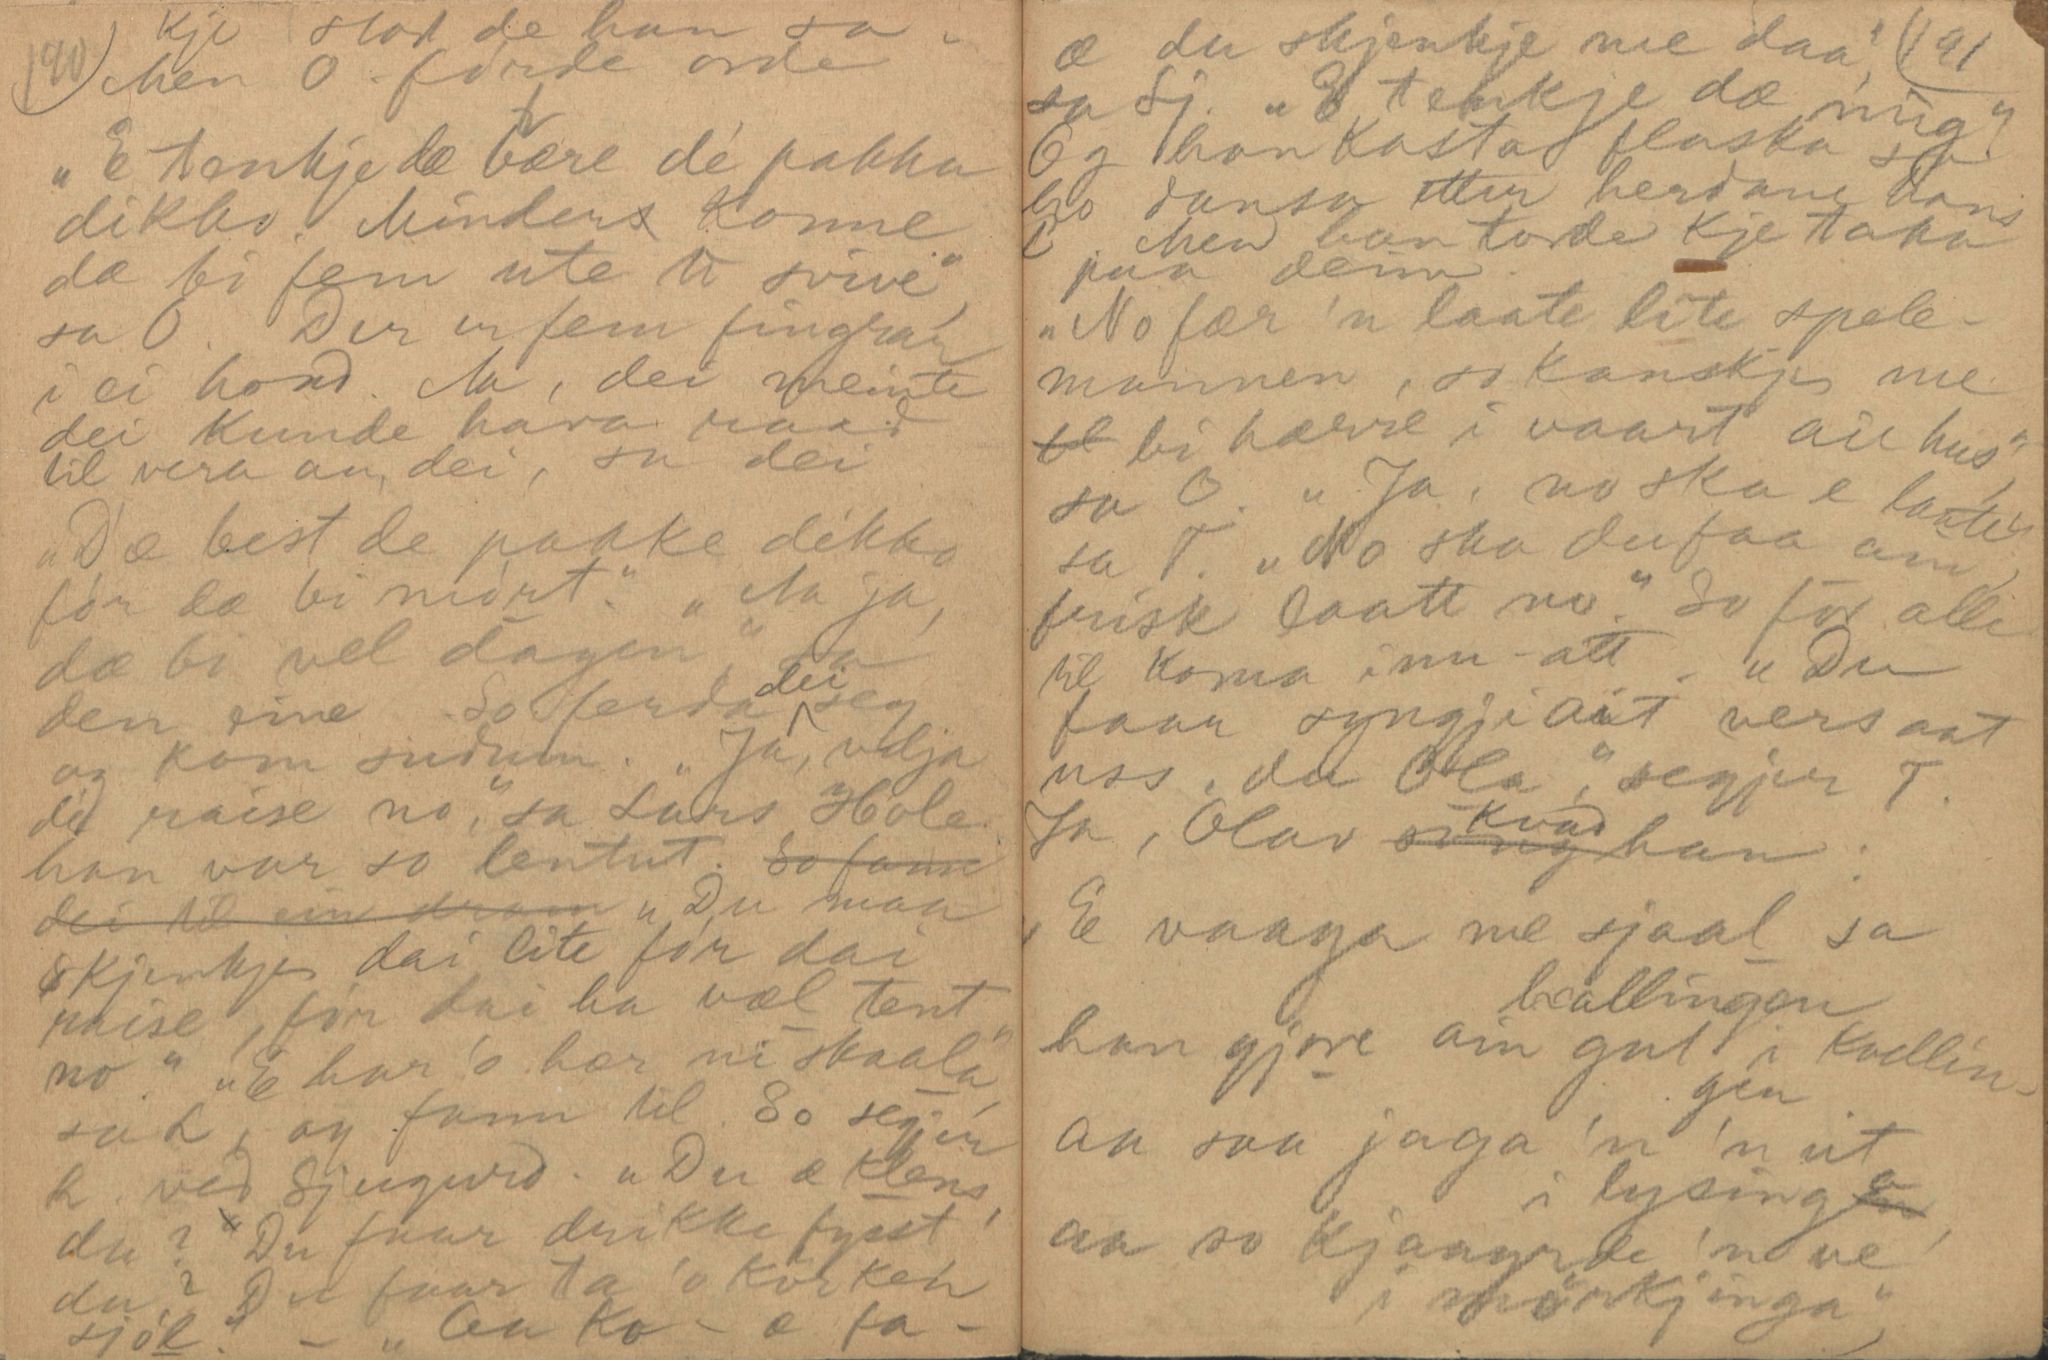 190) kje stod de han sa.
Men O. förde orde
"E tenkje dæ være dé pakka
dikko. Minders konne
dæ bi fem ute ti svive",
sa O. Der er fem fingrar
i ei hond. Aa, dei meinte
dei kunde hava raad
til vera au, dei, sa dei
"Dæ best de pakke dikko
för dæ bi mört." "Aa ja,
dæ bi vel dagen", sa
den eine. So ferda dei seg
og kom sudum. "Ja, vilja
di raise no," sa Lars Hole
han var so lentut. So fann
dei til ein dram "Du maa
skjenkje dai lite för dai
raise, för dai ha væl tent
no." "E har 'o hær ni skaala"
sa L, og fann til. So segjer
L. ved Sjugurd. "Du æ klens,
du? Du faar drikke fyst
du? Du faar ta 'o korken
sjöl." – "Aa ko – æ fa –
æ du skjenkje me daa?" (191
sa Sj. "E tenkje dæ nug"
Og han kasta flaska so
ho dansa etter herdane hans
L. Men han torde kje taka
paa deim.
"No fær 'n laate lite spele-
mannen, so kanskje me
sl bi hærre i vaart aie hus",
sa O. "Ja, no ska e laate"
sa T. "No ska du faa ain
frisk laatt no." So för alle
til koma inn-att. "Du
faar syngji ait vers aat
uss, du Ola," segjer T.
Ja, Olav song kvad han.
"E vaaga me sjaal sa
hallingen
han gjore ain gut i kadlin-
gen
aa saa jaga 'n 'n ut
i lysinga
aa so kjaagrde 'n ve
i mörkjinga",